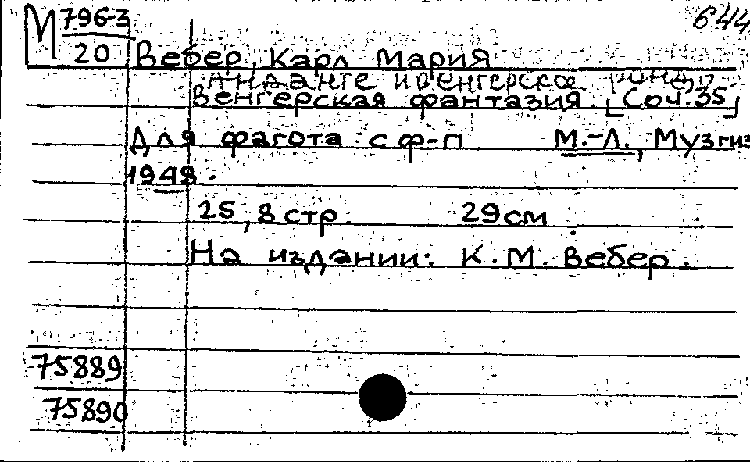 М 796-3 644
20 Вебер, Карл Мария
Анданте и венгерское рондо
Венгерская фантазия. [Соч. 35]
Для фагота с ф-п М.-Л., Музгиз
1948.
25, 8 стр. 29 см
На издании: К. М. Вебер.
75889
75890